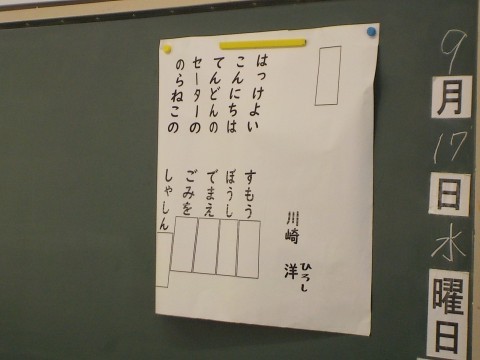 川崎 洋
ひろし
はっけよい すもう
こんにちは ぼうし
てんどんの でまえ
セーターの ごみを
のらねこの しゃしん
9
月
17
日
水
曜
日